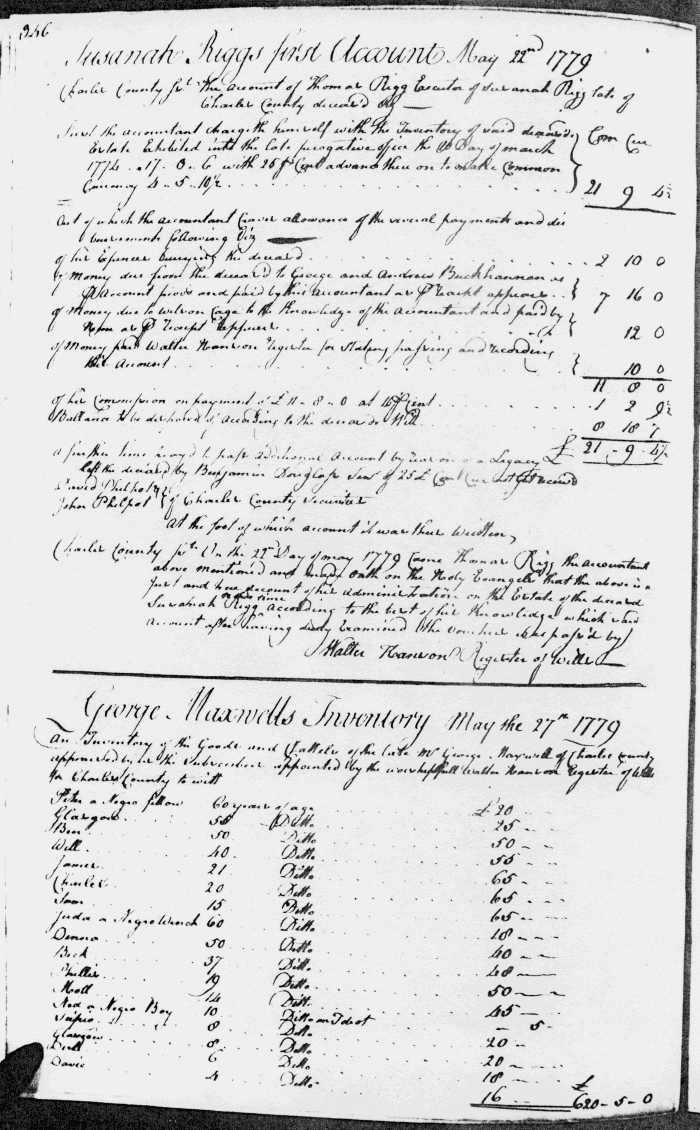 346
Susanah Riggs first Account May 22nd 1779
Charles County Sct. The Account of Thomas Rigg Executor of Susanah Rigg late of
Charles County deceas'd
First the accountant chargeth himself with the Inventory of said deceas'ds
Estate Exhibited into the late perogative office the Day of march
1774. 17. 0. 6 with 25 P Cent advance there on to make Common
Currency 4-5-10½
Com Cur
21 9 4½
Out of which the accountant Craves allowance of the several payments and dis
bursements following Viz
of his Expences burying the deceas'd 2 10 0
of Money due from the deceas'd to George and Andrew Buckhannan as
P Account proved and paid by this Accountant as P receipt appears 7 16 0
of Money due to Wilson Cage to the Knowledge of the Accountant and paid by
him as P receipt appears 12 0
of Money paid Walter Hanson Register for Stating, passing and recording
this Account 10 0
11 8 0
of his Commission on payment of £ 11-8-0 at 10 P Cent 1 2 9½
Ballance to be disposed of According to the deceas'ds Will 8 18 7
£ 21-9-4½
a further time pray'd to pass additional Account by reason of a Legacy
left the deceas'd by Benjamin Douglass Senr of 25£ Com Cur not yet receiv'd
David Philpot
John Philpot } of Charles County Securities
At the foot of which account it was thus Written,
Charles County Sct. On the 22nd Day of may 1779 Came Thomas Rigg the accountant
above mentioned and made oath on the Holy Evangels that the above is a
Just and true account of his Administration on the Estate of the deceas'd
Susanah Rigg According to the best of his Knowledge which said
Account after having duly Examined the voucher was pass'd by
Walter Hanson Register of Wills
George Maxwells Inventory May the 27th 1779
An Inventory of the Goods and Chattels of the late Mr George Maxwell of Charles County
appraised by us the Subscribers appointed by the worshipfull Walter Hanson Register of Wills
for Charles County to witt
Peter a Negro fellow 60 years of age £ 20
Glasgow 58 Ditto 25
Ben 50 Ditto 50
Will 40 Ditto 55
James 21 Ditto 65
Charles 20 Ditto 65
Sam 15 Ditto 65
Juda a Negro Wench 60 Ditto 18
Denna 50 Ditto 40
Beck 37 Ditto 48
Phillis 19 Ditto 50
Moll 14 Ditto 45
Ned a Negro Boy 10 Ditto an Ideot 5
Scipio 8 Ditto 20
Glasgow 8 Ditto 20
6 Ditto 18
Davie 4 Ditto 16
£ 620-5-0